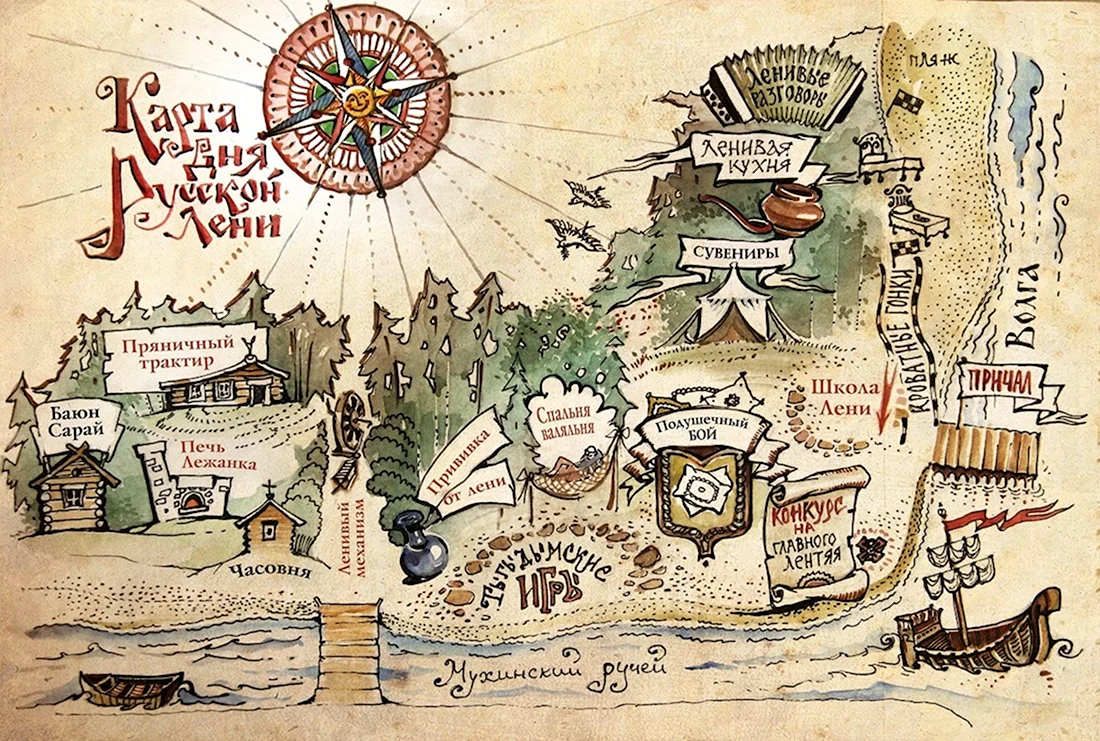 Карта
дня
Русской
лени
Ленивые
разговоры
пляж
Ленивая
кухня
СУВЕНИРЫ
Волга
КРОВАТНЫЕ ГОНКИ
ПРИЧАЛ
Пряничный
трактир
Баюн
Сарай
Печь
Лежанка
Часовня
Ленивый
механизм
Прививка
от лени
Спальня
валяльня
Подушечный
БОЙ
Школа
Лени
КОНКУРС
НА
ГЛАВНОГО
ЛЕНТЯЯ
ИГРЫ
Мухинский ручей